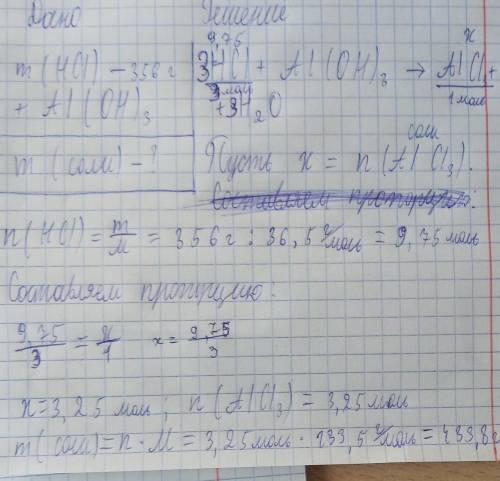 Дано
Решение
m(HCl) - 356 г
+ Al(OH)3
m(соли) - ?
9,75 x
3HCl + Al(OH)3 → AlCl3 +
3 моль 1 моль
+3H2O
соли
Пусть x = n(AlCl3).
Составляем пропорцию:
n(HCl) = m/M = 356 г : 36,5 г/моль = 9,75 моль
Составляем пропорцию:
9,75/3 = x/1 x = 9,75/3
x = 3,25 моль; n(AlCl3) = 3,25 моль
m(соли) = n · M = 3,25 моль · 133,5 г/моль = 433,8 г